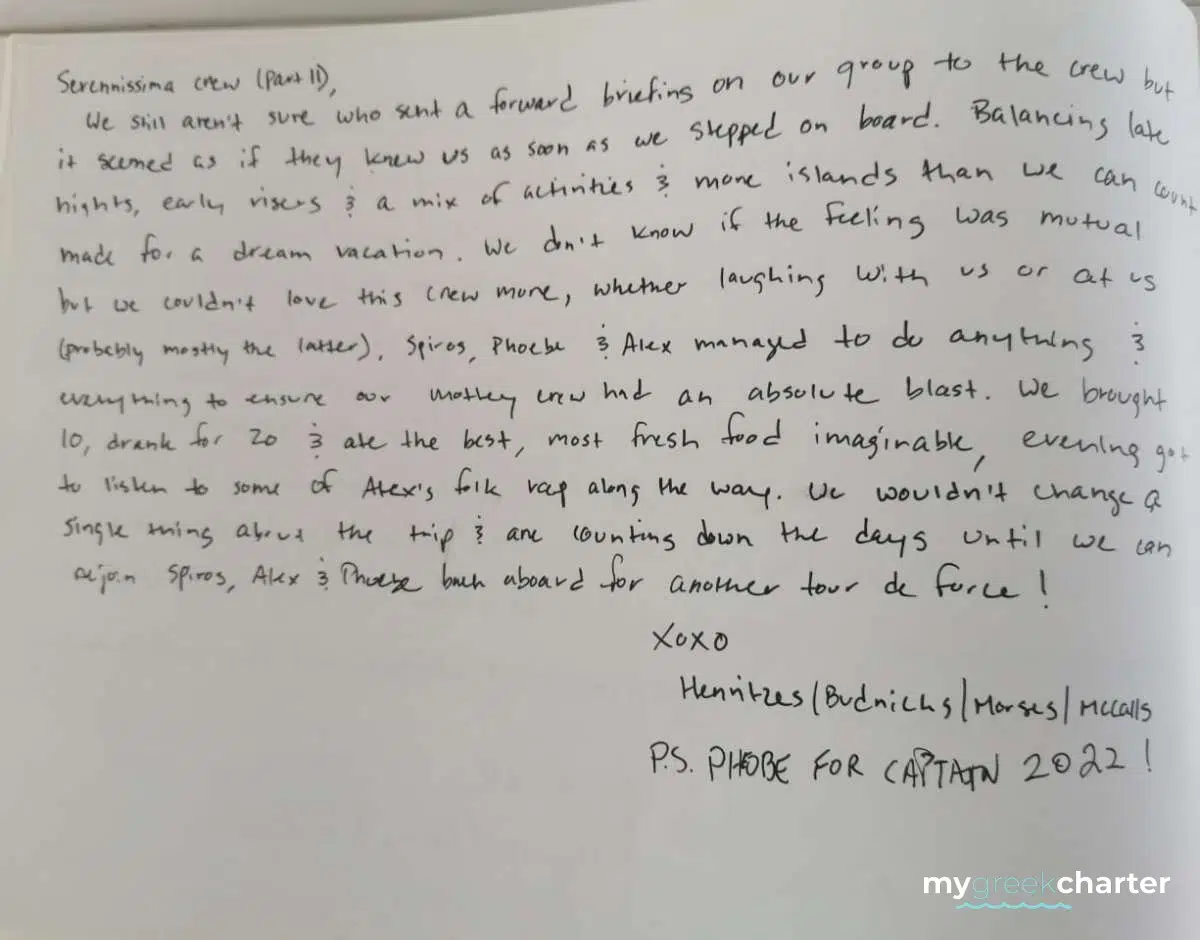 Serennissima crew (Part II),
We still aren't sure who sent a forward briefing on our group to the crew but
it seemed as if they knew us as soon as we stepped on board. Balancing late
nights, early risers & a mix of activities & more islands than we can count
made for a dream vacation. We don't know if the feeling was mutual
but we couldn't love this crew more, whether laughing with us or at us
(probably mostly the latter), Spiros, Phoebe & Alex managed to do anything &
everything to ensure our motley crew had an absolute blast. We brought
10, drank for 20 & ate the best, most fresh food imaginable, evening got
to listen to some of Alex's folk rap along the way. We wouldn't change a
single thing about the trip & are counting down the days until we can
rejoin Spiros, Alex & Phoebe back aboard for another tour de force!
XOXO
Henritzes/Budnichs/Morses/McCalls
P.S. PHOBE FOR CAPTAIN 2022!
mygreekcharter